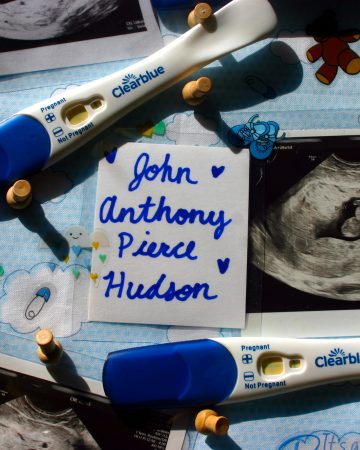 Pregnant
Not Pregnant
Clearblue
John
Anthony
Pierce
Hudson
Pregnant
Not Pregnant
Clearblue
It's a